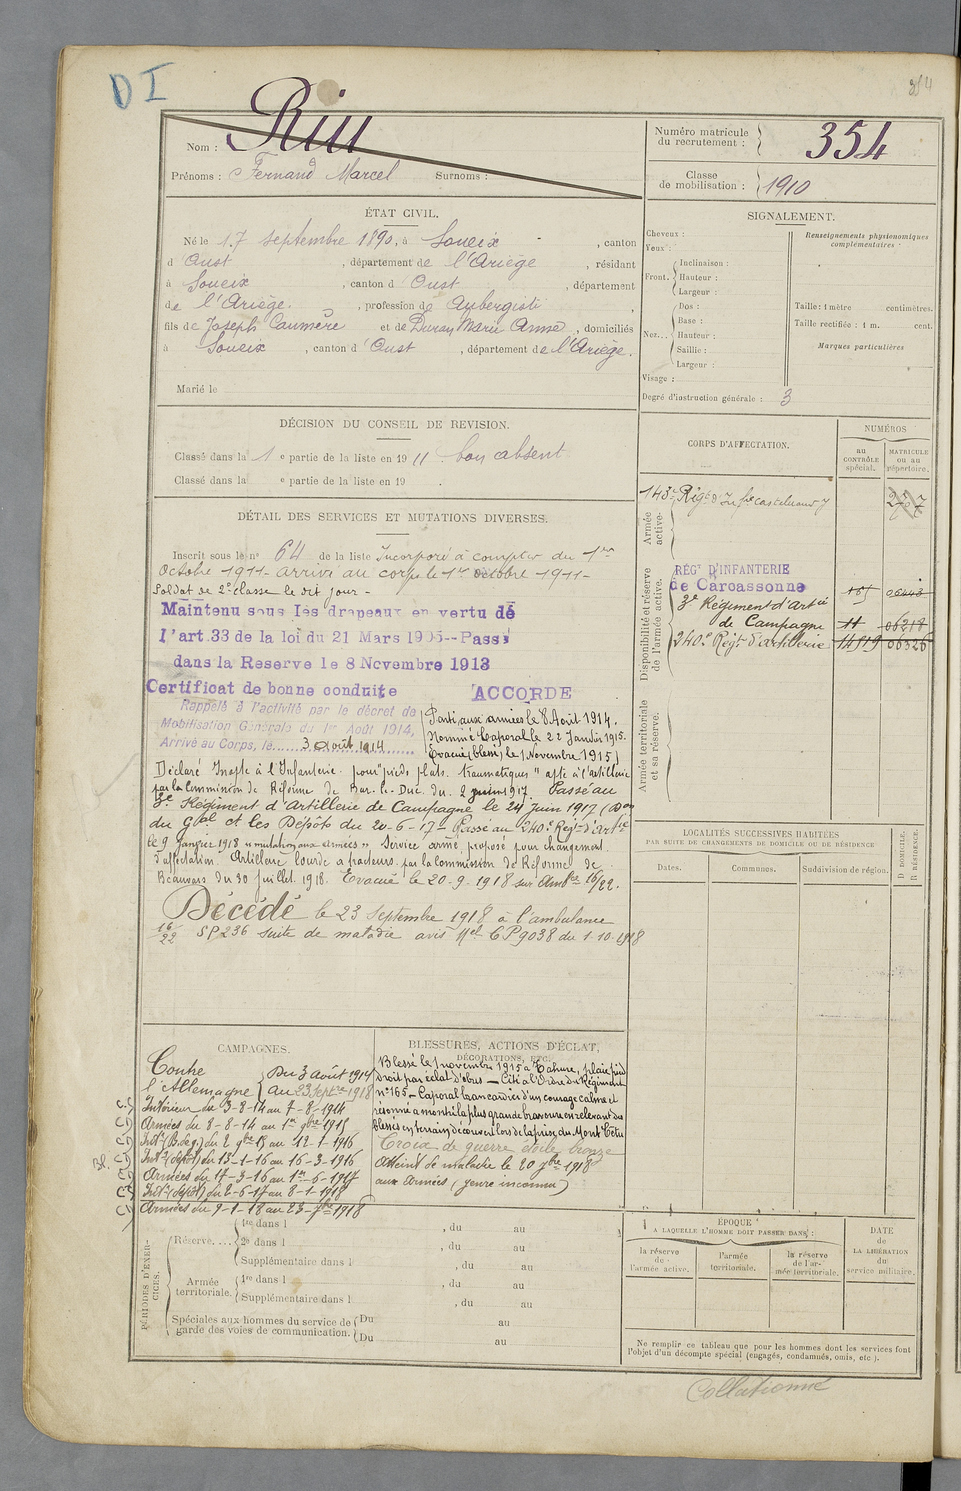 D I
354
Nom : Riu
Prénoms : Fernand Marcel Surnoms :
Numéro matricule du recrutement : 354
Classe de mobilisation : 1910
ÉTAT CIVIL.
Né le 17 septembre 1890, à Soueix , canton
d'Oust , département de l'Ariège , résidant
à Soueix , canton d'Oust , département
de l'Ariège. , profession de Aubergiste
fils de Joseph Caumère et de Duran Marie Anne , domiciliés
à Soueix , canton d'Oust , département de l'Ariège.
Marié le
SIGNALEMENT.
Cheveux :
Yeux :
Front. Inclinaison :
Hauteur :
Largeur :
Nez... Dos :
Base :
Hauteur :
Saillie :
Largeur :
Visage :
Renseignements physionomiques complémentaires :
Taille : 1 mètre centimètres.
Taille rectifiée : 1 m. cent.
Marques particulières
Degré d'instruction générale : 3
DÉCISION DU CONSEIL DE REVISION.
Classé dans la 1 e partie de la liste en 1911 . bon absent
Classé dans la e partie de la liste en 19 .
DÉTAIL DES SERVICES ET MUTATIONS DIVERSES.
Inscrit sous le n° 64 de la liste Incorporé à compter du 1er
Octobre 1911 - arrivé au corps le 1er Octobre 1911 -
Soldat de 2e classe le dit jour -
Maintenu sous les drapeaux en vertu de
l'art.33 de la loi du 21 Mars 1905--Passé
dans la Reserve le 8 Novembre 1913
Certificat de bonne conduite ACCORDE
Rappelé à l'activité par le décret de
Mobilisation Générale du 1er Août 1914,
Arrivé au Corps, le 3 août 1914
Parti aux armées le 8 Août 1914.
Nommé Caporal le 22 Janvier 1915.
Evacué (blessé) le 1 Novembre 1915
Déclaré Inapte à l'Infanterie pour "pieds plats traumatiques" apte à l'artillerie
par la Commission de Réforme de Bar-le-Duc du 2 juin 1917. Passé au
3e Régiment d'Artillerie de Campagne le 24 Juin 1917 (Don
du Gal et les Dépôts du 20-6-17 - Passé au 240e Régt d'Artie
le 9 janvier 1918 "mutation aux armées" Service armé, proposé pour changement
d'affectation Artillerie lourde à tracteurs par la Commission de Réforme de
Beauvais du 30 juillet 1918. Evacué le 20-9-1918 sur Ambce 16/22.
Décédé le 23 Septembre 1918 à l'ambulance
16/22 SP 236 suite de maladie avis Mel CP 9038 du 1-10-1918
CORPS D'AFFECTATION.
NUMÉROS
au CONTRÔLE spécial.
MATRICULE ou au répertoire.
Armée active.
143e Régt d'Infie Castelnaudary
Disponibilité et réserve de l'armée active.
RÉGt D'INFANTERIE
de Carcassonne
3e Régiment d'Artie
de Campagne 11 06218
240e Régt d'artillerie 14519 06326
Armée territoriale et sa réserve.
LOCALITÉS SUCCESSIVES HABITÉES
PAR SUITE DE CHANGEMENTS DE DOMICILE OU DE RÉSIDENCE
Dates.
Communes.
Subdivision de région.
D DOMICILE.
R RÉSIDENCE.
CAMPAGNES.
Contre l'Allemagne Du 3 août 1914
au 23 Septbre 1918
Intérieur du 3-8-14 au 7-8-1914
Armées du 8-8-14 au 1er 9bre 1915
Intr (B. de g.) du 2 9bre 15 au 12-1-1916
Intr (dépôt) du 13-1-16 au 16-3-1916
Armées du 17-3-16 au 1er-6-1917
Intr (dépôt) du 2-6-17 au 8-1-1918
Armées du 9-1-18 au 23-7bre 1918
BLESSURES, ACTIONS D'ÉCLAT,
DÉCORATIONS, ETC.
Blessé le 1 novembre 1915 à Tahure, plaie pied
droit par éclat d'obus - Cité à l'Ordre du Régiment
n° 165 - Caporal brancardier d'un courage calme et
résonné a montré la plus grande bravoure en relevant des
blessés en terrain découvert lors de la prise du Mont Têtu
Croix de guerre étoile bronze
Atteint de maladie le 20 7bre 1918
aux Armées (genre inconnu)
PÉRIODES D'EXERCICES.
Réserve. ... 1re dans l , du au
2e dans l , du au
Supplémentaire dans l , du au
Armée territoriale. 1re dans l , du au
Supplémentaire dans l , du au
Spéciales aux hommes du service de garde des voies de communication. Du au
Du au
ÉPOQUE
A LAQUELLE L'HOMME DOIT PASSER DANS :
la réserve de l'armée active.
l'armée territoriale.
la réserve de l'armée territoriale.
DATE de LA LIBÉRATION du service militaire.
Ne remplir ce tableau que pour les hommes dont les services font
l'objet d'un décompte spécial (engagés, condamnés, omis, etc.).
Collationné